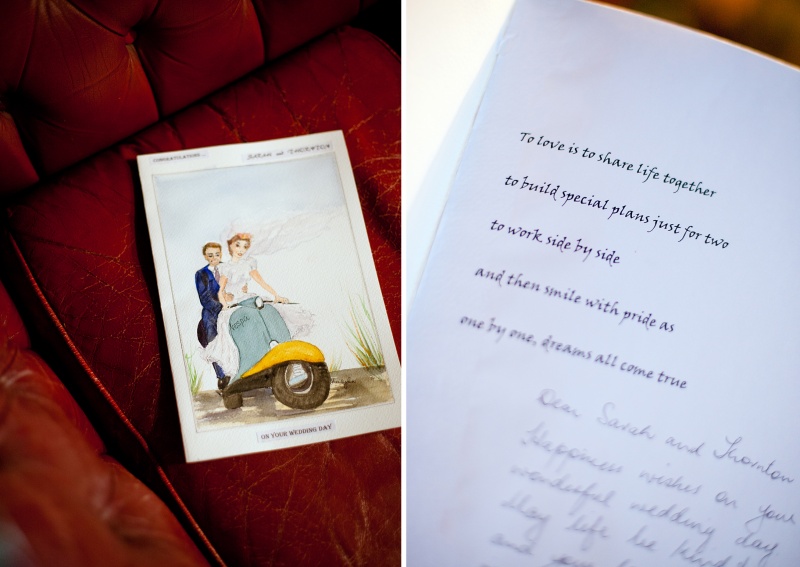 CONGRATULATIONS...
SARAH and THORNTON
Vespa
ON YOUR WEDDING DAY
To love is to share life together
to build special plans just for two
to work side by side
and then smile with pride as
one by one, dreams all come true
Dear Sarah and Thornton
Happiness wishes on your
wonderful wedding day
May life be kind t
and